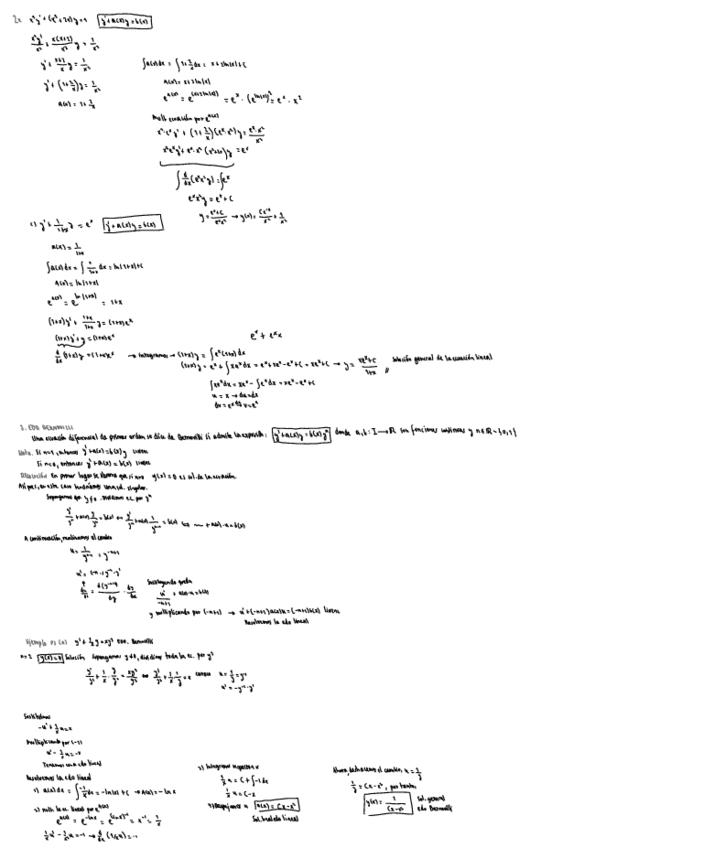 2x x²y'+(x²+2x)y=1 y'+a(x)y=b(x)
x²y'/x² + x(x+2)/x² y = 1/x²
y'+ x+2/x y = 1/x²
y'+(1+2/x)y = 1/x²
a(x)= 1+ 2/x
∫a(x)dx = ∫1+2/x dx = x+2ln(x)+C
A(x)= x+2ln(x)
e^A(x) = e^(x+2ln(x)) = e^x · (e^ln(x))² = e^x · x²
Mult ecuación por e^A(x)
x²·e^x y' + (1+2/x)(e^x·x²)y = e^x·x²/x²
∫ d/dx (e^x x² y) = ∫e^x
e^x x² y = e^x + C
y = e^x+C/e^x x² → y(x)= Ce^-x/x² + 1/x²
c) y'+ 1/1+x y = e^x y'+a(x)y=b(x)
a(x)= 1/1+x
∫a(x)dx = ∫ 1/1+x dx = ln(1+x)+C
A(x)= ln(1+x)
e^A(x) = e^ln(1+x) = 1+x
(1+x)y' + 1+x/1+x y = (1+x)e^x
(1+x)y'+y = (1+x)e^x
e^x + e^x x
d/dx (1+x)y = (1+x)e^x → Integramos → (1+x)y = ∫e^x(1+x)dx
(1+x)y = e^x + ∫xe^x dx = e^x+xe^x-e^x+C = xe^x+C → y = xe^x+C/1+x Solución general de la ecuación lineal
∫xe^x dx = xe^x - ∫e^x dx = xe^x-e^x+C
u = x → du=dx
3. EDO BERNOULLI
Una ecuación diferencial de primer orden se dice de Bernoulli si admite la expresión: y'+a(x)y=b(x)y^n donde a,b: I→R son funciones continuas y n∈R-{0,1}
Nota. Si n=1, entonces y'+a(x)=b(x)y lineal
Si n=0, entonces y'+a(x)=b(x) lineal
En primer lugar se observa que si n>0 y(x)=0 es sol. de la ecuación.
Así pues, en este caso tendríamos una sol. singular.
Supongamos que y≠0. Dividimos ec. por y^n
y'/y^n + a(x) y/y^n = b(x) ⇔ y'/y^n + a(x) 1/y^n-1 = b(x)
A continuación, realizamos el cambio
u = 1/y^n-1 = y^-n+1
u' = (-n+1)y^-n·y'
Sustituyendo queda
u'/-n+1 + a(x)·u = b(x)
y multiplicando por (-n+1) → u'+(-n+1)a(x)u=(-n+1)b(x) lineal
Resolvemos la edo lineal
Ejemplo y'+ 1/x y = xy² EDO. Bernoulli
n=2 y(x)=0 Solución Supongamos y≠0, dividimos toda la ec. por y²
y'/y² + 1/x · y/y² = xy²/y² ⇔ y'/y² + 1/x 1/y = x cambio u = 1/y = y^-1
u' = -y^-2·y'
Sustituimos
-u'+ 1/x u = x
Multiplicando por (-1)
u' - 1/x u = -x
Tenemos una edo lineal
Resolvemos la edo lineal
1) a(x)dx = ∫ -1/x dx = -ln(x)+C → A(x) = -ln x
2) mult. la ec. lineal por e^A(x)
e^A(x) = e^-lnx = e^(lnx)^-1 = x^-1 = 1/x
1/x u' - 1/x² u = -1 → d/dx (1/x u) = -1
3) Integramos respecto a x
1/x u = C+∫-1dx
1/x u = C-x
4) Despejamos u u(x) = Cx-x²
Sol. Gral edo lineal
Ahora, deshacemos el cambio, u = 1/y
1/y = Cx-x², por tanto
y(x) = 1/Cx-x² Sol. general
edo Bernoulli